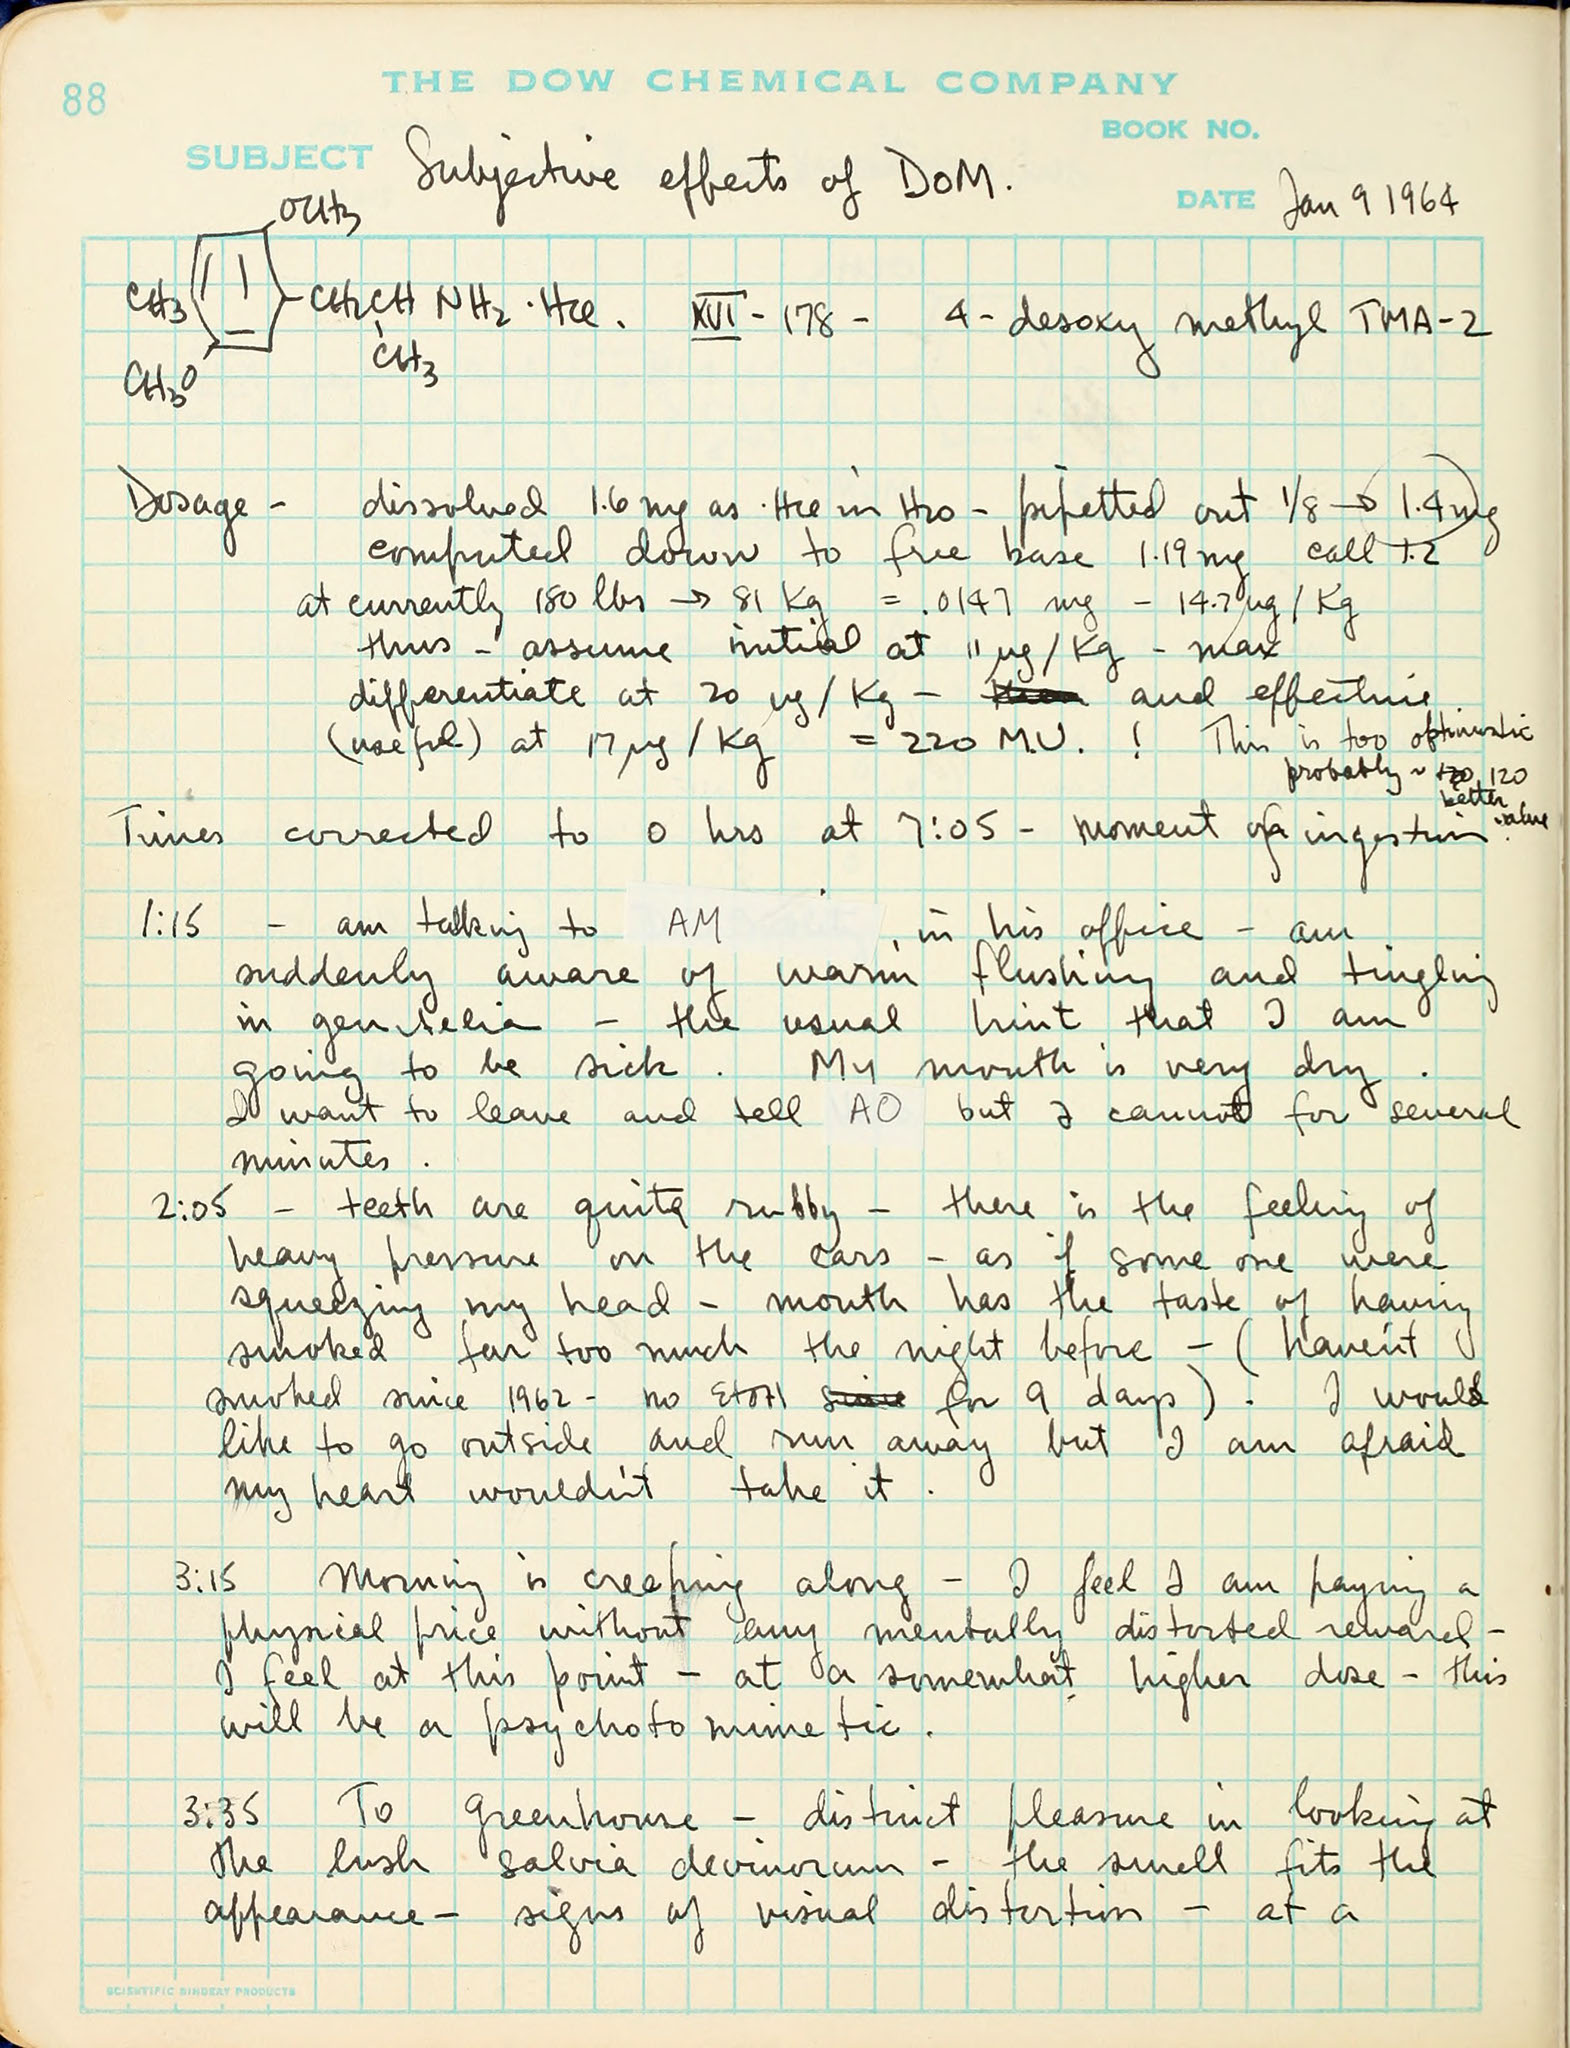 88
THE DOW CHEMICAL COMPANY
BOOK NO.
SUBJECT Subjective effects of DOM.
DATE Jan 9 1964
OCH3
CH3 CH2CH NH2 · HCl. XVI - 178 - 4-desoxy methyl TMA-2
CH3
CH3O
Dosage - dissolved 1.6 mg as ·HCl in H2O - pipetted out 1/8 → 1.4 mg
computed down to free base 1.19 mg call 1.2
at currently 180 lbs → 81 Kg = .0147 mg - 14.7 µg/Kg
thus - assume initial at 11 µg/Kg - max
differentiate at 20 µg/Kg - and effective
(useful) at 17 µg/Kg = 220 M.U. ! This is too optimistic
probably ~ 120
better
value.
Times corrected to 0 hrs at 7:05 - moment of ingestion
1:15 - am talking to AM , in his office - am
suddenly aware of warm flushing and tingling
in genitelia - the usual hint that I am
going to be sick. My mouth is very dry.
I want to leave and tell AO but I cannot for several
minutes.
2:05 - teeth are quite rubby - there is the feeling of
heavy pressure on the ears - as if some one were
squeezing my head - mouth has the taste of having
smoked far too much the night before - (haven't
smoked since 1962 - no EtOH since for 9 days). I would
like to go outside and run away but I am afraid
my heart wouldn't take it.
3:15 Morning is creeping along - I feel I am paying a
physical price without any mentally distorted reward -
I feel at this point - at a somewhat higher dose - this
will be a psychotomimetic.
3:35 To greenhouse - distinct pleasure in looking at
the lush salvia devinorum - the smell fits the
appearance - signs of visual distortion - at a
SCIENTIFIC BINDERY PRODUCTS